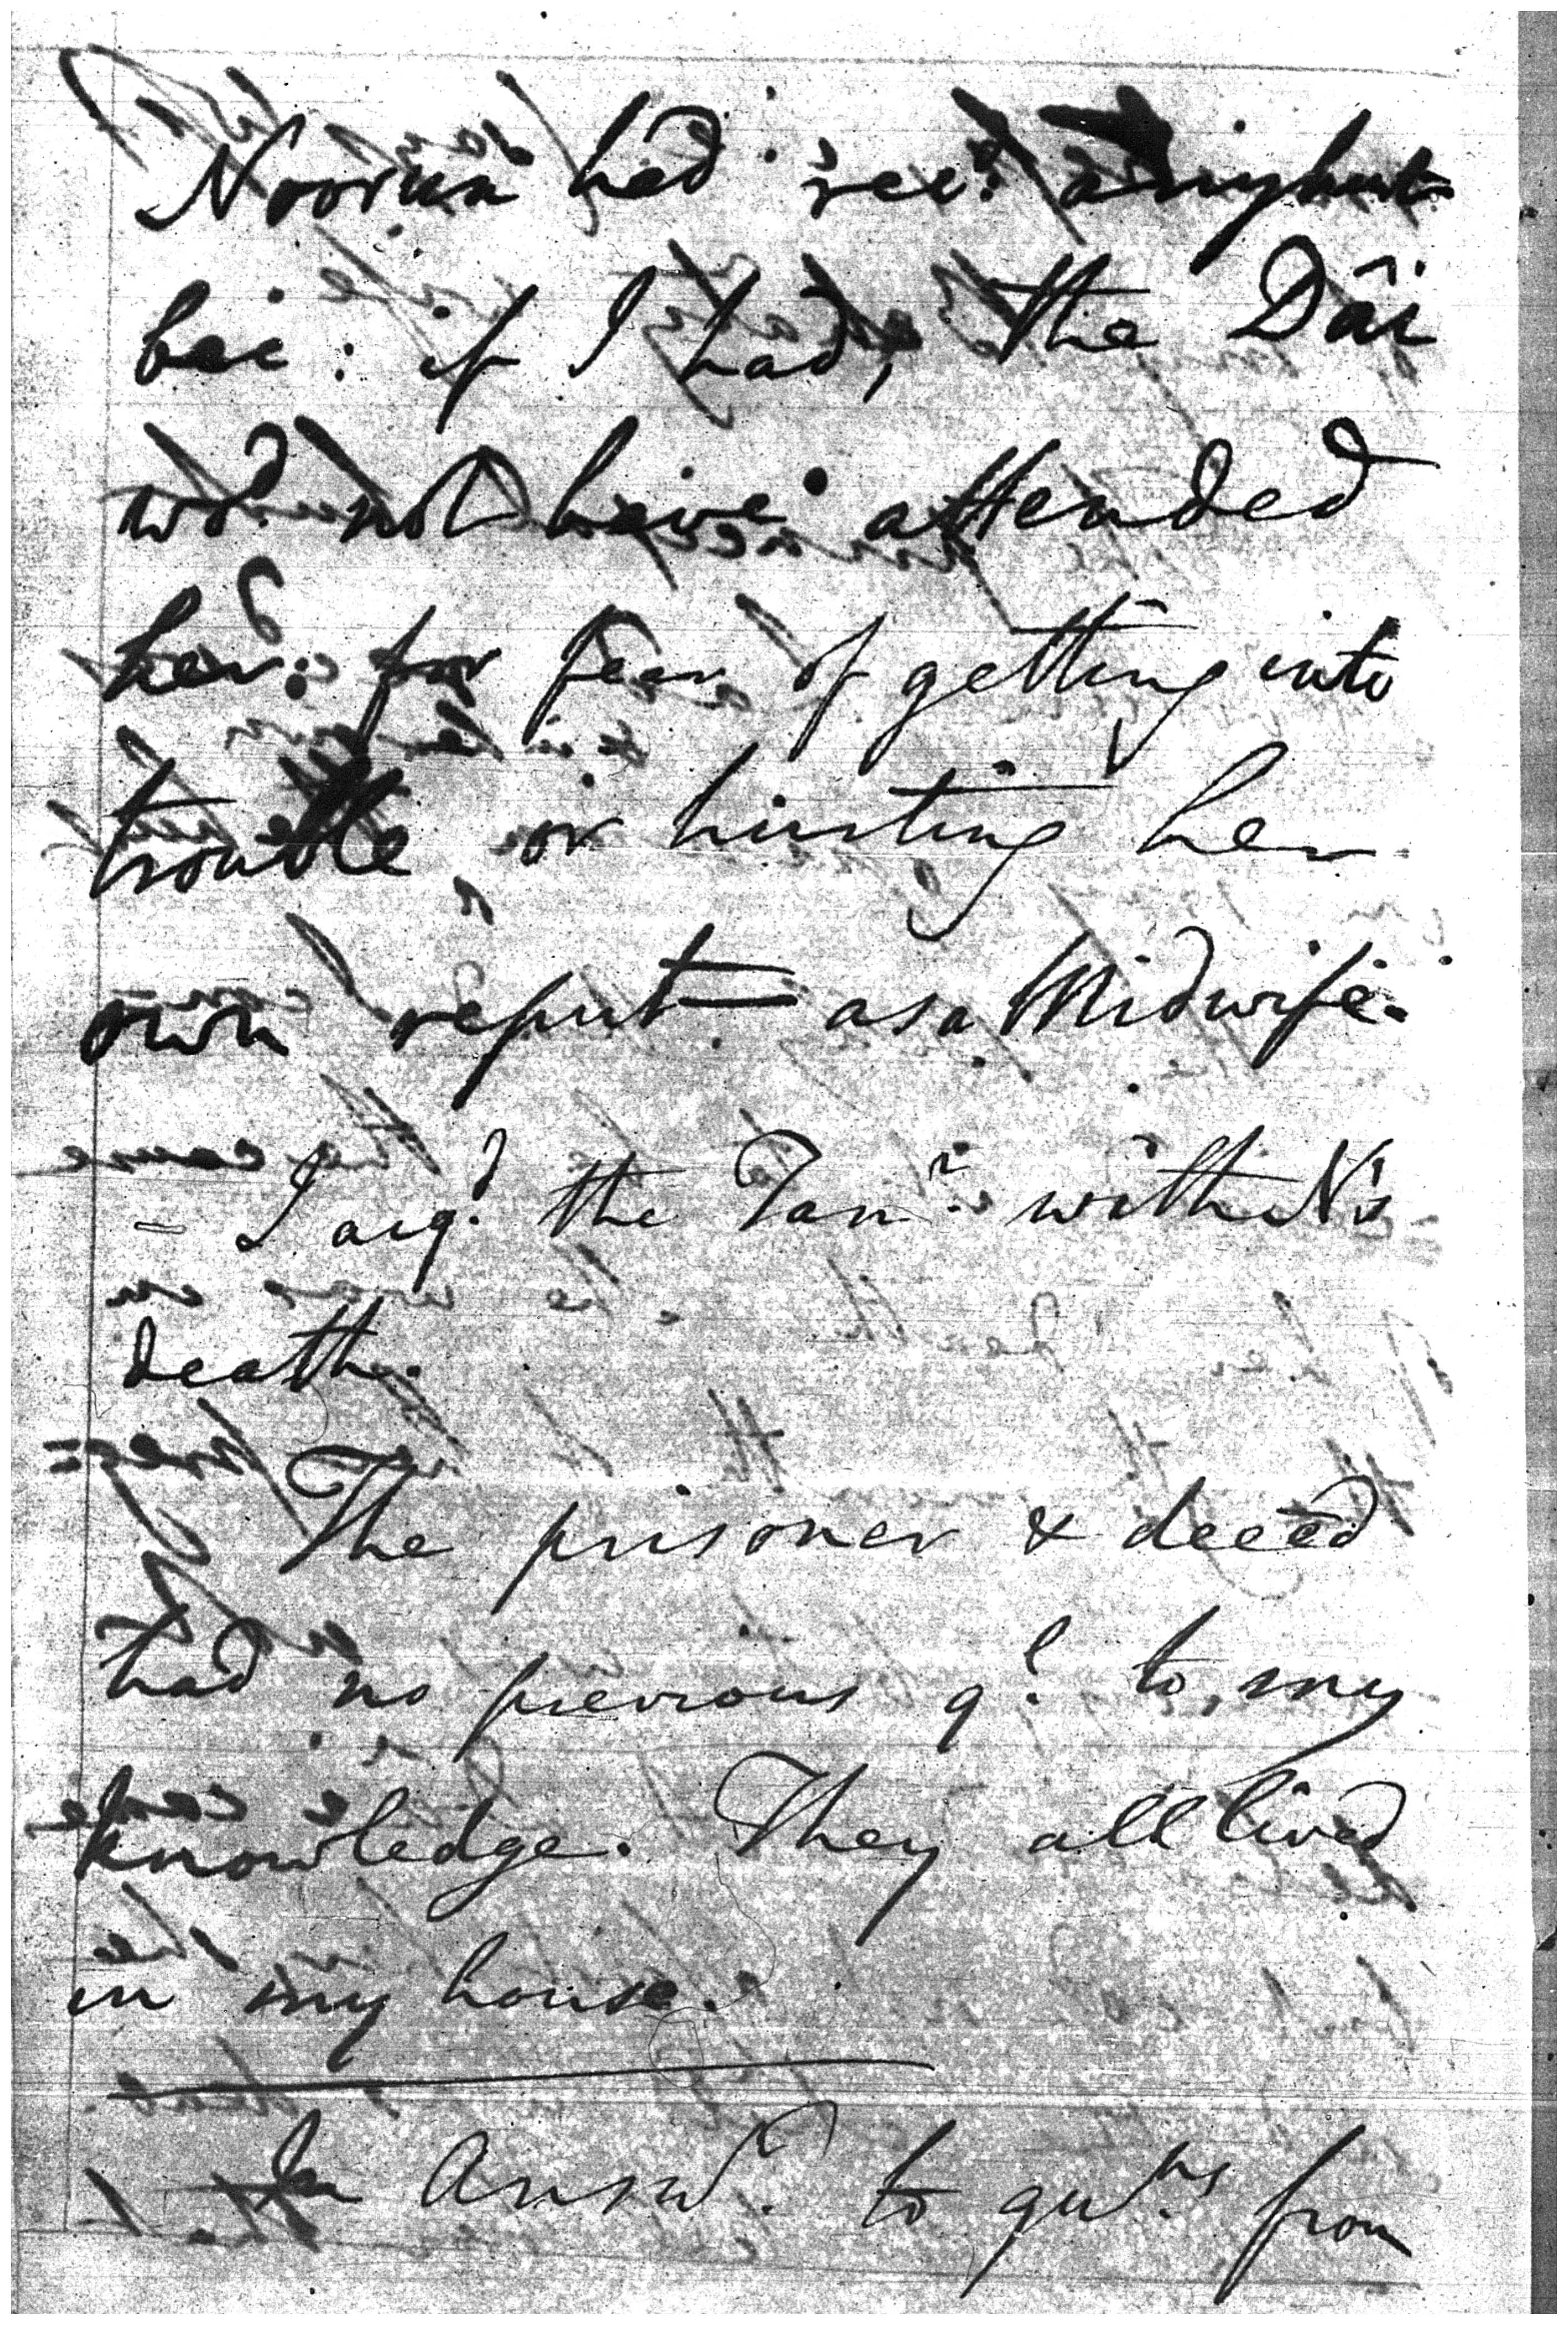 Noorun had recd. any hurt
bec: if I had, the Dâi
wd. not have attended
her: for fear of getting into
trouble, or hurting her
own reput. as a Midwife.
- I acqd. the Tanr. with N's
death.
The prisoner & deced
had no previous ql. to my
knowledge. They all lived
in my house.
In Answr. to qu.ns from